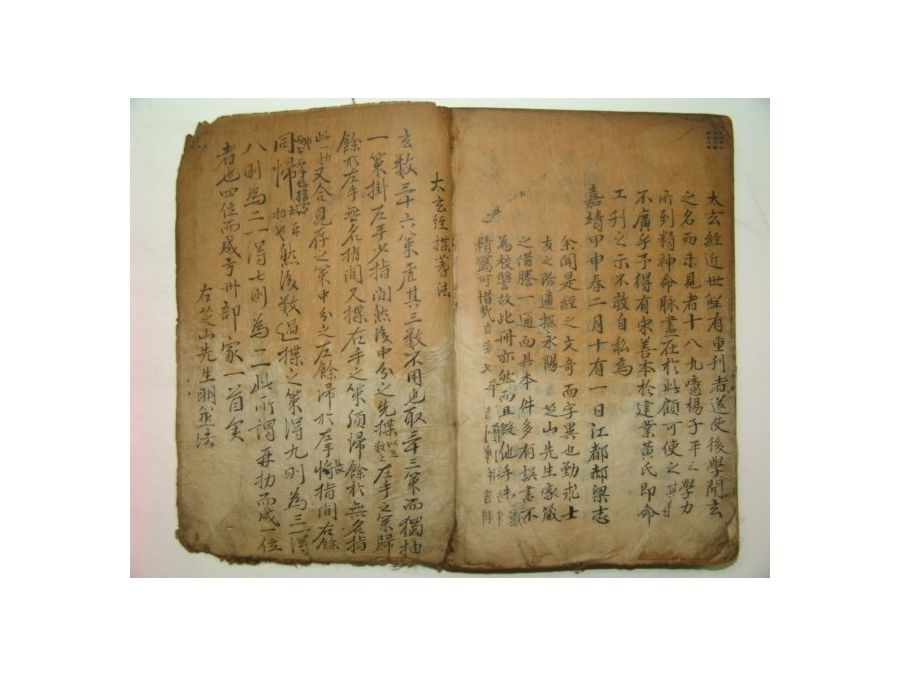 太玄経近世鮮有重刊者遂使後學聞玄
之名而未見者十八九噫楊子平生學力
所到精神命脉盡在於此顧可使之
不廣乎予得有宋善本於建業黄氏即命
工刊之示不敢自私焉
嘉靖甲申春二月十有一日江都郝梁志
余聞是經之文奇而字異也勤求士
友之際適探永陽芝山先生家藏
之借謄一通而其本件多有誤書不
為校讐故此冊亦然而且
精寫可惜哉
太玄經揲蓍法
玄数三十六策虛其三数不用也取三十三策而獨抽
一策掛左手少指間然後中分之先揲以三数之左手之策歸
餘於左手無名指間又揲右手之策須歸餘於無名指
此一扐又合見存之策中分之左餘歸於左手將指間右餘
同歸然後数過揲之策得九則為三得
八則為二得七則為一此所謂再扐而成一位
者也四位而成方州部家一首矣
右芝山先生明筮法